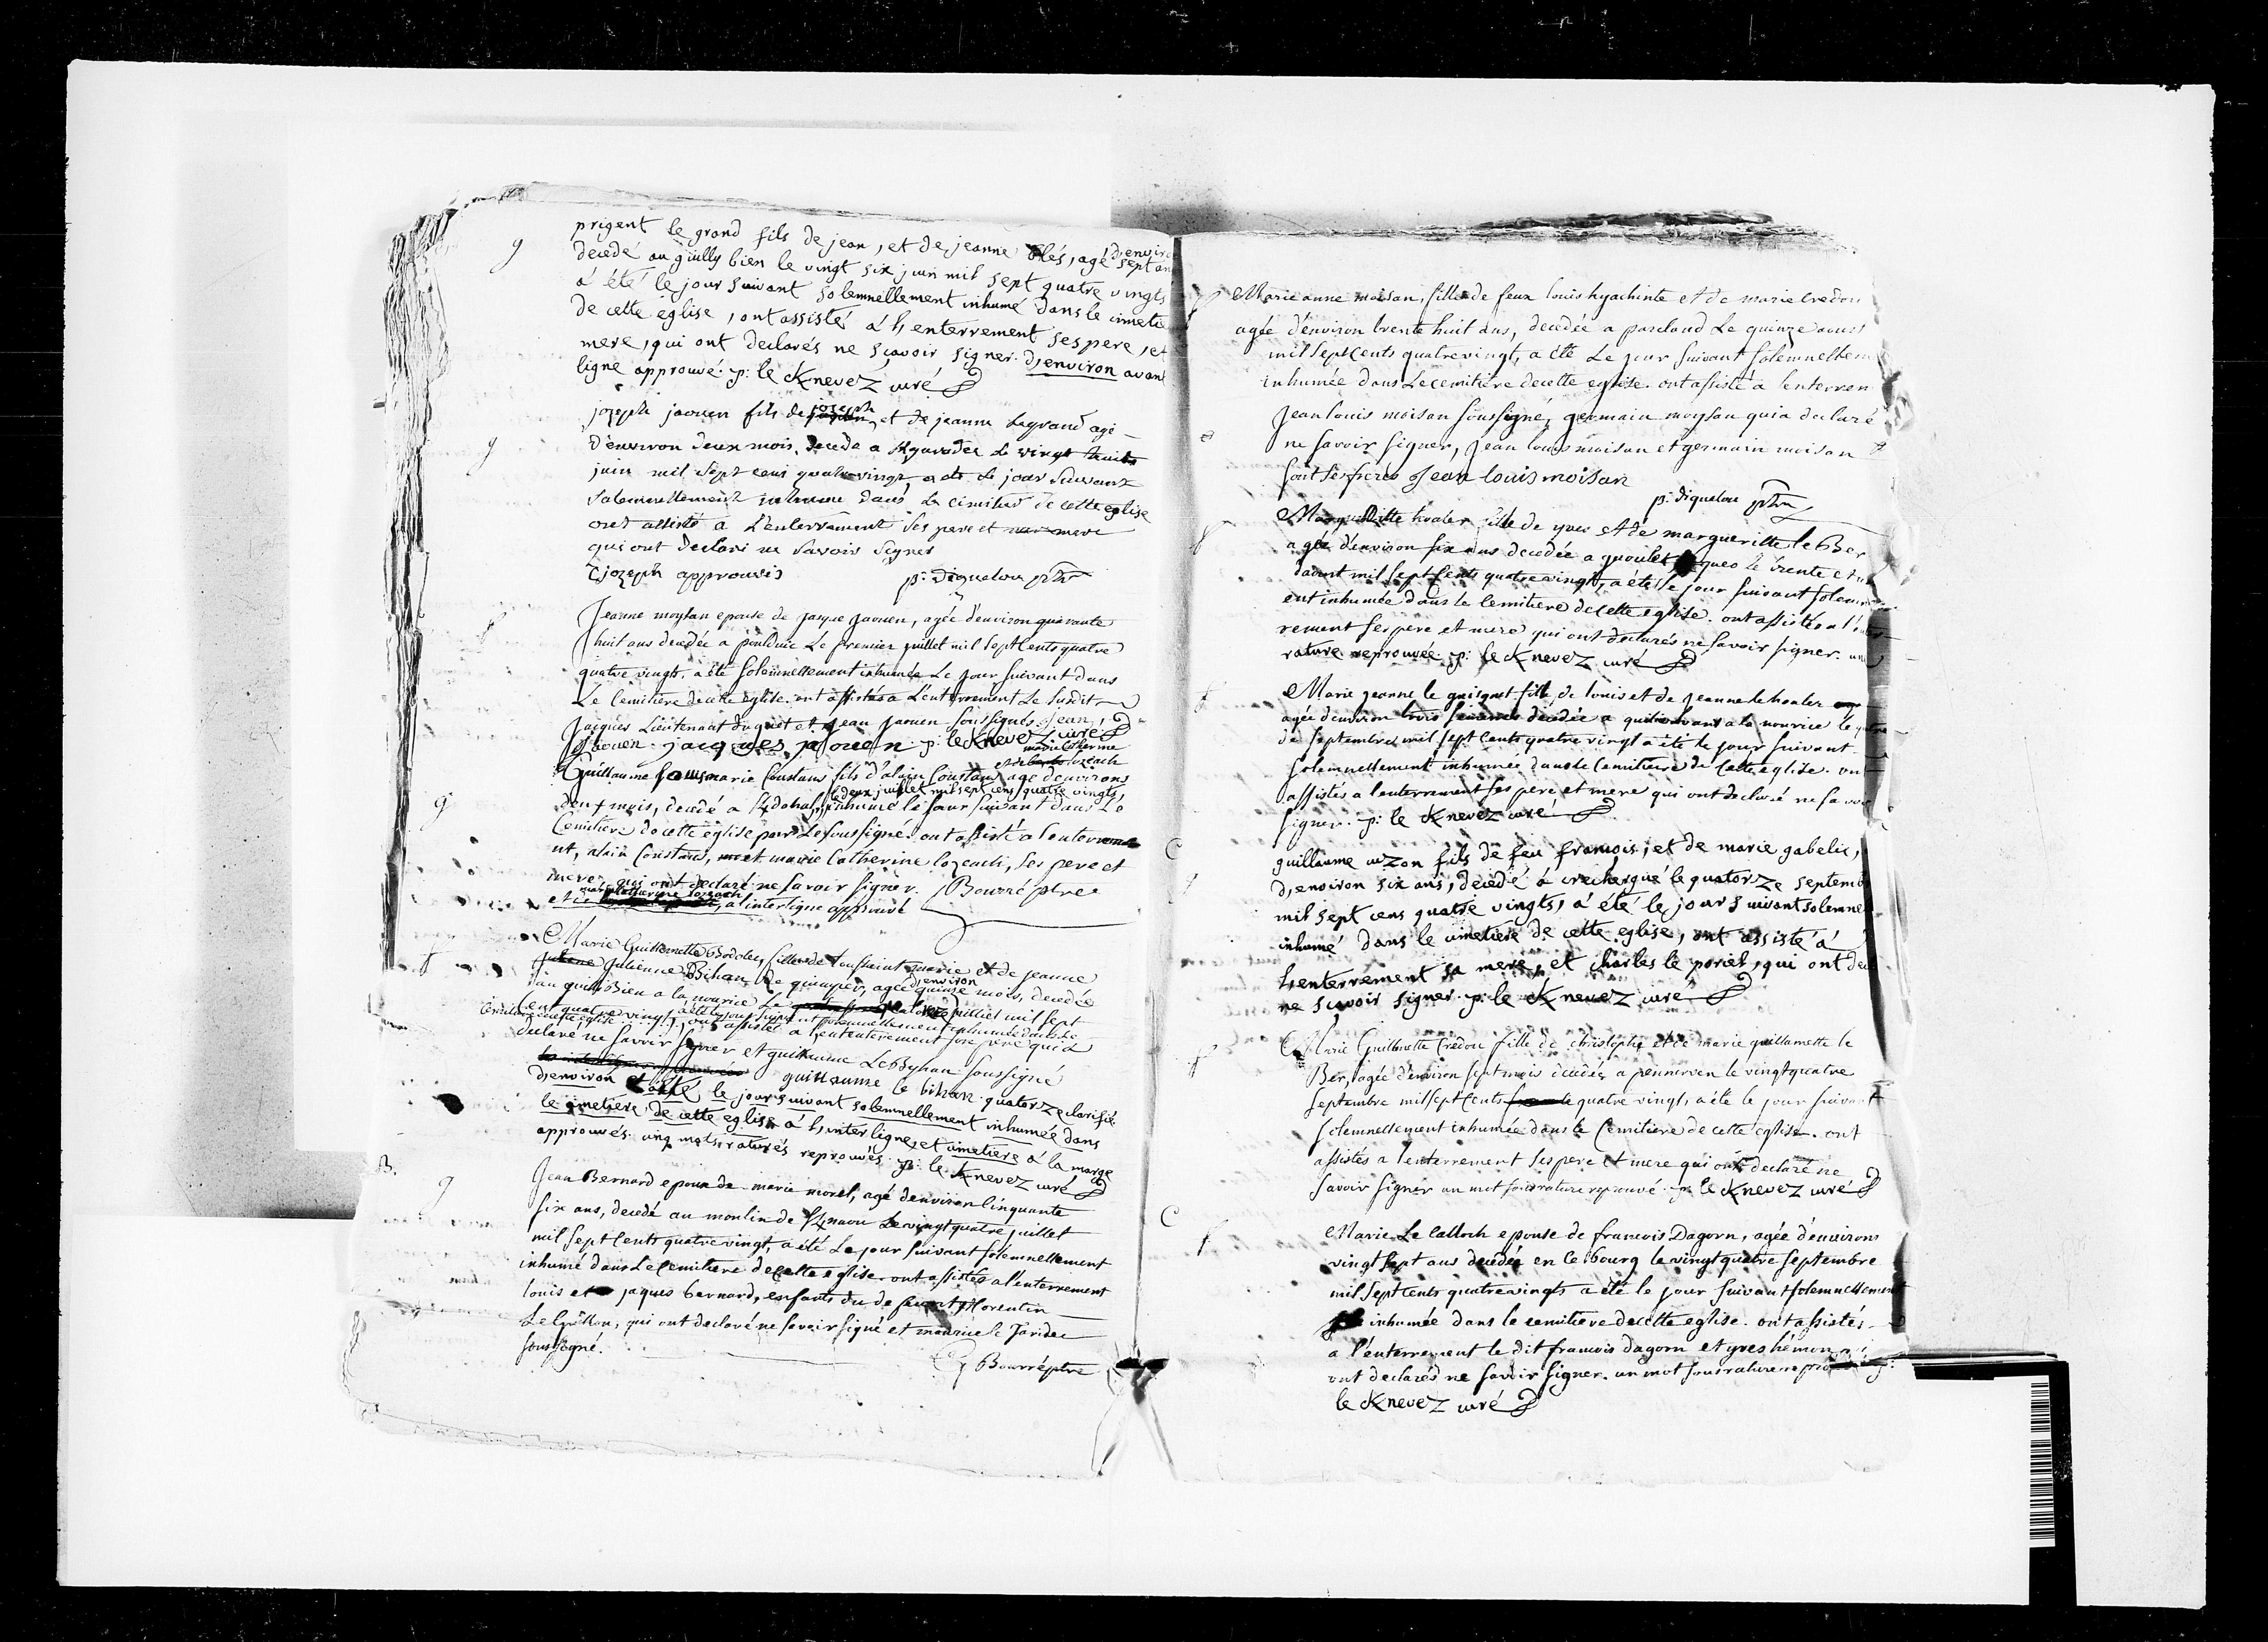 g
prigent le grand fils de jean, et de jeanne Blés, agé d,envir
sept an
décédé au guilly bien le vingt six juin mil sept quatre vingts
à été le jour suivant solemnellement inhumé dans le cimetie
de cette église, ont assisté à l,enterrement ses pere, et
mere, qui ont declarés ne sçavoir signer. d,environ avant
ligne approuvé. p: le Knevez curé
g
jozeph jaouen fils de jozeph et de jeanne Legrand agé
d'environ deux mois. decede a le vingt
juin mil sept cens quatre vingt, a ete le jour suivant
solemnellement inhumé dans le cimitier de cette eglise
ont assisté a L'enterrement ses pere et mere
qui ont declaré ne savoir signer
jozeph approuvis p: diquelou ptre
f
Jeanne moysan epouse de jaque jaouen, agée d'environ quarante
huit ans decedée a poulduic Le premier juillet mil sept Cents quatre
quatre vingt, a été solemnellement inhumée Le jour suivant dans
Le Cemitiere de cette église. ont assistés a L'enterrement Le susdit
Jacques Lieutenant duguet et jean jaouen soussignés. jean
jaouen. jacques jaouen p: le Knevez curé
marie Catherine
lozeach
g
Guillaume marie Constans fils d'alain Constans agé denvirons
le deux juillet mil sept cens quatre vingts,
deux mois, decédé a inhumé le jour suivant dans Le
Cemitiere de cette église par Le soussigné. ont assisté a lenterreme
nt, alain Constans, et marie Catherine lozeach, ses pere et
mere qui ont declaré ne savoir signer. Bourré ptre
marie Catherine lozeach
a l'interligne approuvé
f
Marie Guillemette Bodolec, fille de toussaint marie et de jeanne
julienne Bihan, de quimper, agée d,environ quinze mois, decedée
au guilly Bien a la nourice Le quatorze juilliet mil sept
Cent quatre vingt, a été le jour suivant solemnellement inhumée dans Le
Cemitiere de cette église, ont assistés a l'enterrement son pere qui a
declaré ne savoir signer et guillaume Le Byhan soussigné
guillaume le bihan. quatorze clarifié
d,environ et a été le jour suivant solemnellement inhumée dans
le cimetiere de cette eglise à l,interligne, et cimetiere à la marge
approuvés. cinq mots raturés reprouvés. p: le Knevez curé
B.
g
Jean Bernard epoux de marie morel, agé denviron Cinquante
six ans, decedé au moulin de Le vingt quatre juillet
mil sept Cents quatre vingt, a été Le jour suivant solemnellement
inhumé dans Le Cemitiere de Cette eglise. ont assistés a lenterrement
louis et jaques bernard, enfants du defunt, florentin
Le Guillou, qui ont declaré ne savoir signé et maurice le Taridec
soussigné.
Bourré ptre
f
Marie anne moisan, fille de feux louis hyachinte et de marie Credou
agée d'environ trente huit ans, decedée a le quinze aoust
mil sept Cents quatre vingt, a été Le jour suivant solemnellem
inhumée dans Le cemitiere de cette eglise. ont assisté a lenterrem
Jean louis moisan soussigné, germain moysan qui a declaré
ne savoir signer, Jean louis moisan et germain moisan
sont ses freres Jean louis moisan
p: diquelou ptre
f
Margueritte hoaler fille de yves et de margueritte le Ber
agée d'environ six ans decedée a le trente et un
daout mil sept Cents quatre vingt, a été le jour suivant solemn
ent inhumée dans le Cemitiere de cette eglise. ont assistés a l'
rement ses pere et mere qui ont declarés ne savoir signer. une
rature reprouvée. p: le Knevez curé
f
Marie jeanne le guisquet fille de louis et de jeanne le hoaler
agée d'environ trois semaines decedée a la nourice le
de septembre mil sept Cents quatre vingt a été le jour suivant
solemnellement inhumée dans le Cemitiere de Cette eglise. ont
assistés a lenterrement ses pere et mere qui ont declaré ne savoir
signer. p: le Knevez curé
C
g
guillaume fils de feu francois, et de marie gabelic,
d,environ six ans, décédé à crechergué le quatorze septemb
mil sept cens quatre vingts, à été le jour suivant solemne
inhumé dans le cimetiere de cette eglise, ont assisté à
l,enterrement sa mere, et charles le poriel, qui ont de
ne sçavoir signer. p: le Knevez curé
f
Marie Guillemette Credou fille de christophe et de marie guillamette le
Ber, agée d'environ sept mois decedée a pennerven le vingt quatre
septembre mil sept Cents quatre vingt, a été le jour suivant
solemnellement inhumée dans le Cemitiere de cette eglise. ont
assistés a lenterrement ses pere et mere qui ont declaré ne
savoir signer un mot sous rature reprouvé. p: le Knevez curé
C
f
Marie Le Calloch epouse de francois Dagorn, agée d'environs
vingt sept ans decedée en ce bourg le vingt quatre septembre
mil sept cents quatre vingts a été le jour suivant solemnellement
inhumée dans le cemitiere de cette eglise. ont assistés
a l'enterrement le dit francois dagorn et yves hémon
ont declarés ne savoir signer. un mot sous rature p:
le Knevez curé